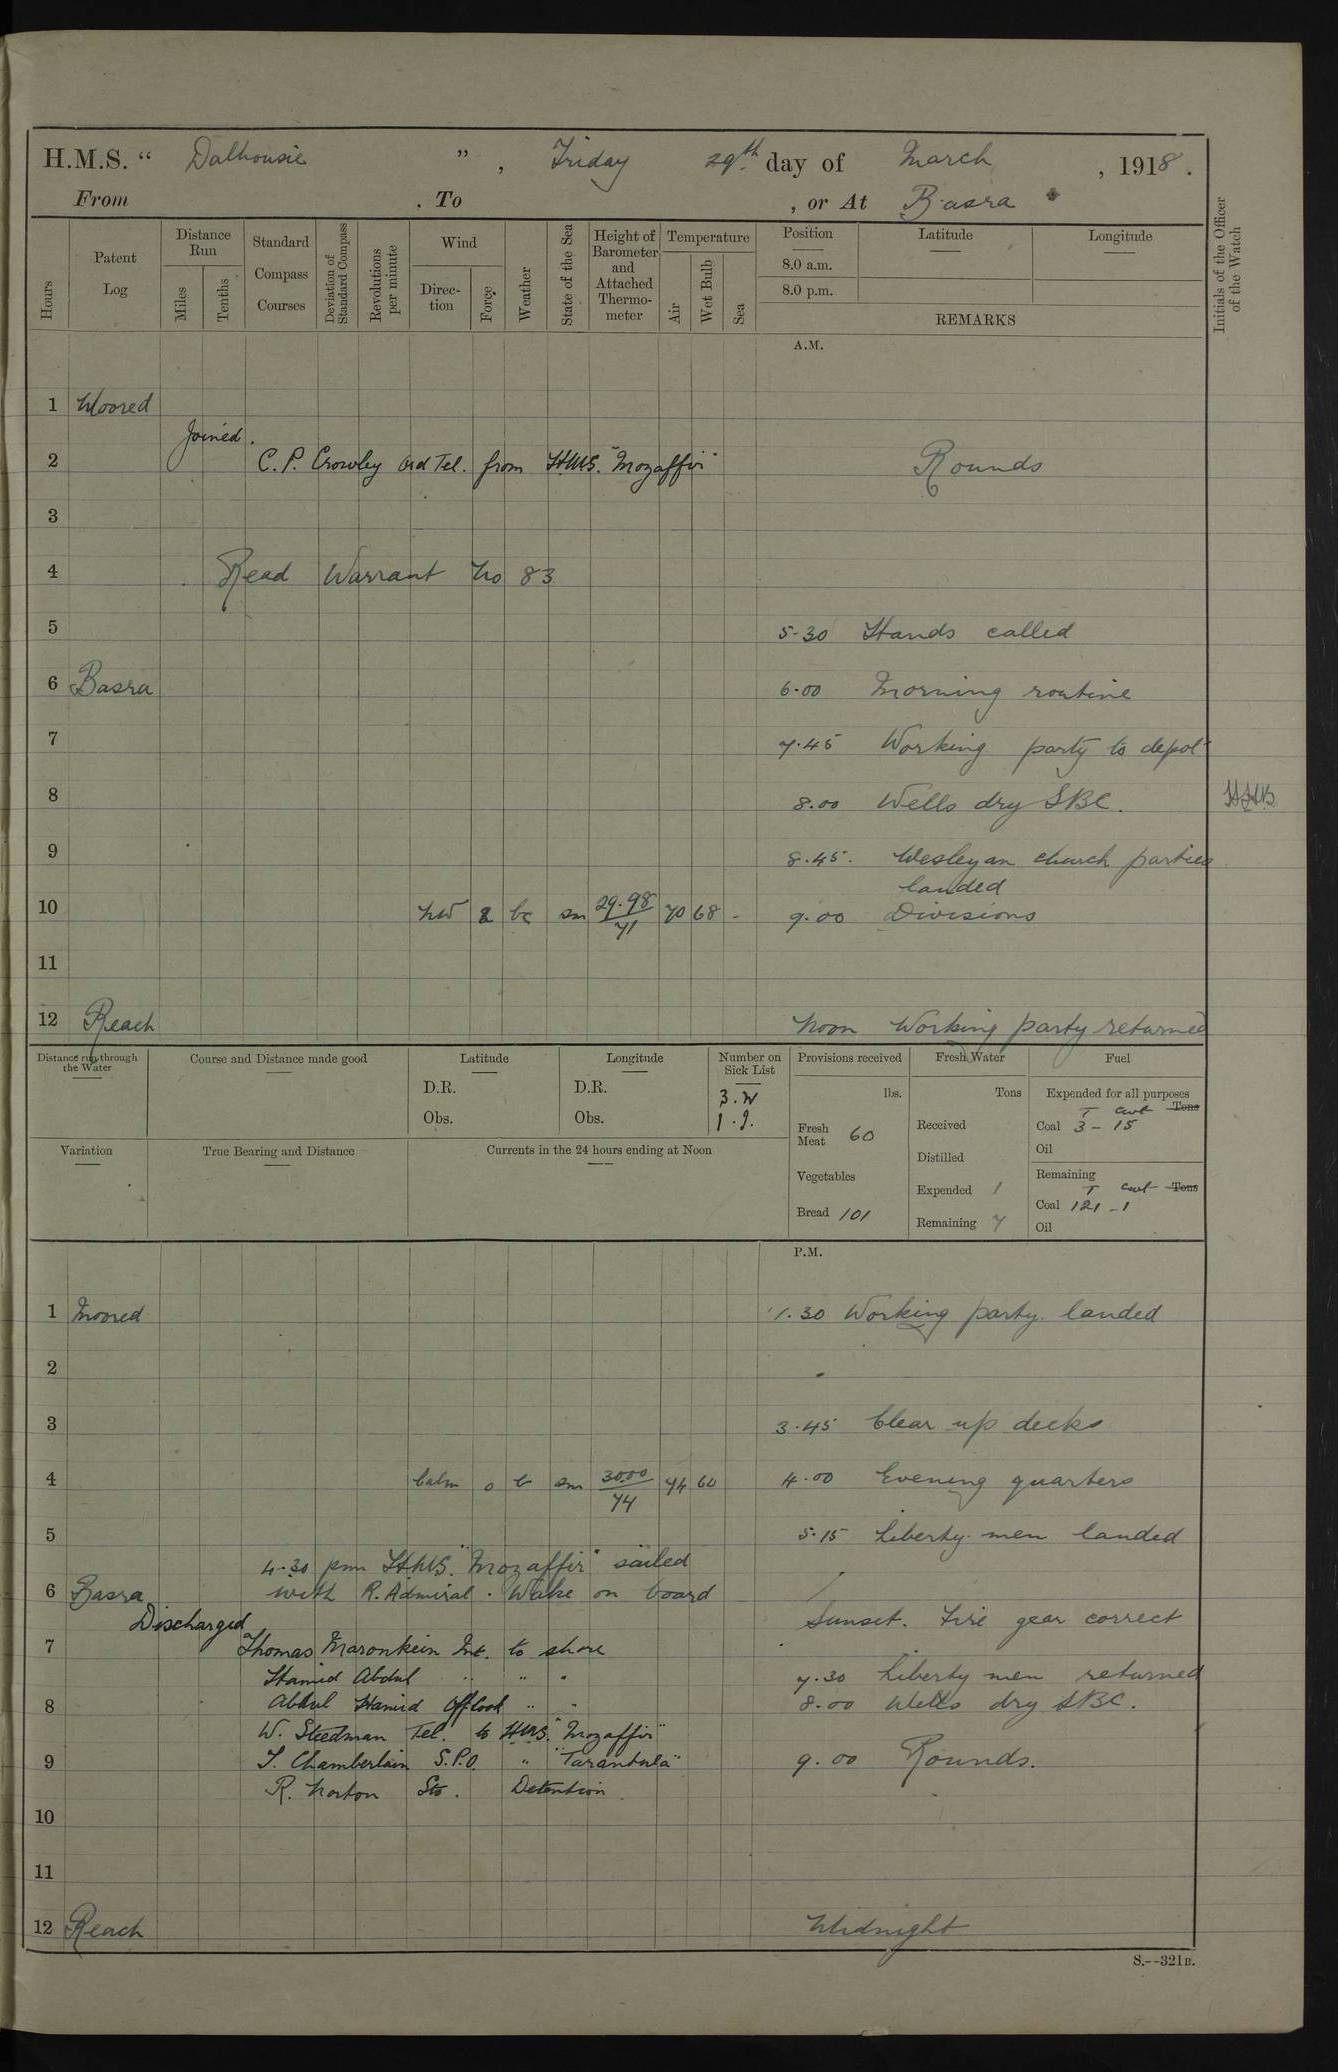 H.M.S. “ Dalhousie ” , Friday 29th day of March , 1918 .
From . To , or At Basra
Hours
Patent Log
Distance Run
Miles
Tenths
Standard Compass Courses
Deviation of Standard Compass
Revolutions per minute
Wind
Direc-tion
Force
Weather
State of the Sea
Height of Barometer and Attached Thermo-meter
Temperature
Air
Wet Bulb
Sea
Position
8.0 a.m.
8.0 p.m.
Latitude
Longitude
REMARKS
Initials of the Officer of the Watch
A.M.
1 Moored
Joined.
2 C. P. Crowley Ord Tel. from H.M.S. "Mozaffir" Rounds
3
4 Read Warrant No 83
5 5-30 Hands called
6 Basra 6.00 Morning routine
7 7.45 Working party to depot
8 8.00 Wells dry SBC.
9 8.45. Wesleyan church parties
landed
10 NW 2 bc sm 29.98/71 70 68 - 9.00 Divisions
11
12 Reach Noon Working party returned
Distance run through the Water
Course and Distance made good
Latitude
D.R.
Obs.
Longitude
D.R.
Obs.
Number on Sick List
3.W
1.J.
Provisions received
lbs.
Fresh Meat 60
Vegetables
Bread 101
Fresh Water
Tons
Received
Distilled
Expended 1
Remaining 7
Fuel
Expended for all purposes
T cwt Tons
Coal 3 - 15
Oil
Remaining
T cwt Tons
Coal 121 - 1
Oil
Variation
True Bearing and Distance
Currents in the 24 hours ending at Noon
P.M.
1 Moored 1.30 Working party landed
2
3 3.45 Clear up decks
4 Calm 0 b sm 30.00/74 74 60 4.00 Evening quarters
5 5.15 Liberty men landed
4-30 pm H.M.S. "Mozaffir" sailed
6 Basra with R. Admiral . Wake on board
Discharged Sunset. Fire gear correct
7 Thomas Maronkein Int. to shore
Hamid Abdul " " " 7.30 Liberty men returned
8 Abdul Hamid Off Cook " " 8.00 Wells dry SBC.
W. Steedman Tel. to H.M.S. "Mozaffir"
9 T. Chamberlain S.P.O. " "Tarantula" 9.00 Rounds.
R. Norton Sto. Detention
10
11
12 Reach Midnight
S.--321B.